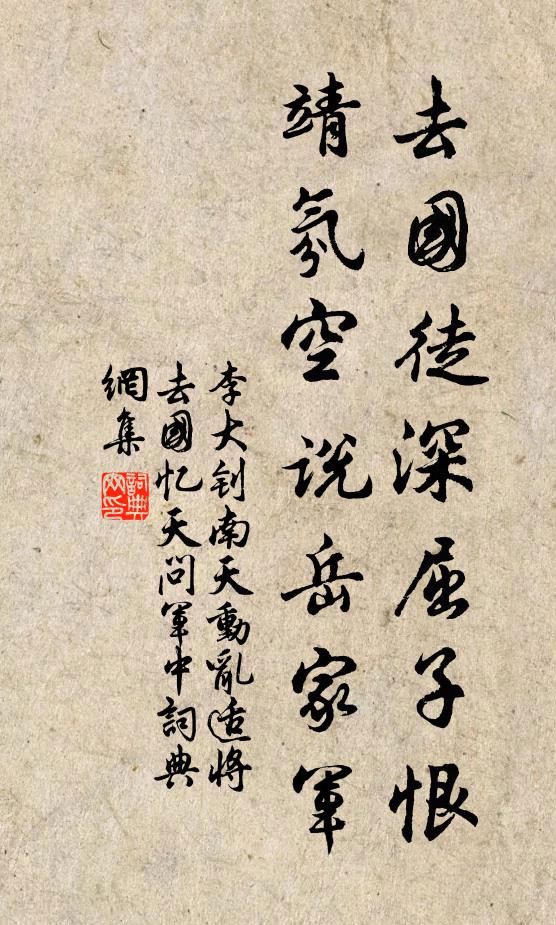 去國徒深屈子恨
靖氛空說岳家軍
李大釗南天動亂适將
去國忆天問軍中詞典
網集
詞典
网印